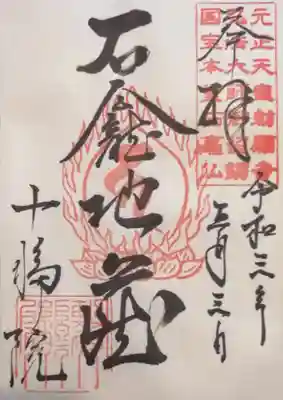 元正天皇勅願寺
国宝本堂石龕仏
奉拝
石龕地蔵
令和三年
月三日
十輪院